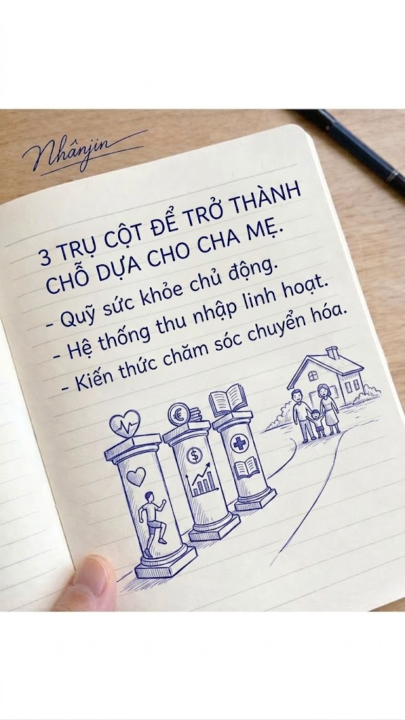 Nhânjin
3 TRỤ CỘT ĐỂ TRỞ THÀNH
CHỖ DỰA CHO CHA MẸ.
- Quỹ sức khỏe chủ động.
- Hệ thống thu nhập linh hoạt.
- Kiến thức chăm sóc chuyển hóa.